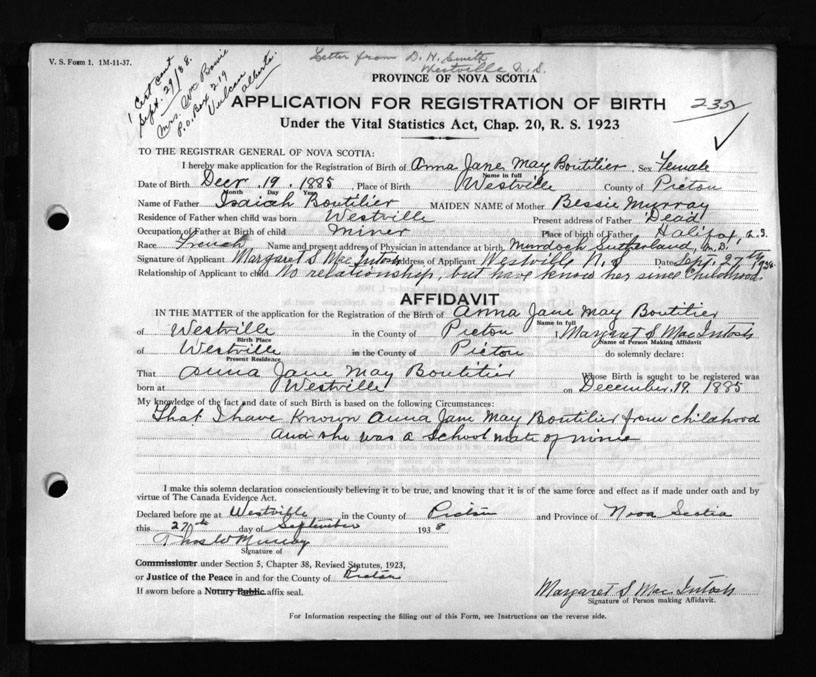 V. S. Form 1. 1M-11-37.
Letter from D. H. Smith
Westville N. S.
1 Cert sent
Sept. 29/38.
Mrs. Bowie
P.O. Box 219
Vulcan
Alberta.
PROVINCE OF NOVA SCOTIA
APPLICATION FOR REGISTRATION OF BIRTH
235
Under the Vital Statistics Act, Chap. 20, R. S. 1923
TO THE REGISTRAR GENERAL OF NOVA SCOTIA:
I hereby make application for the Registration of Birth of Anna Jane May Boutilier, Sex Female
Name in full
Date of Birth Decr. 19, 1885, Place of Birth Westville County of Pictou
Month Day Year
Name of Father Isaiah Boutilier MAIDEN NAME of Mother Bessie Murray
Residence of Father when child was born Westville Present address of Father Dead
Occupation of Father at Birth of child Miner Place of birth of Father Halifax, N.S.
Race French Name and present address of Physician in attendance at birth Murdoch Sutherland, M.D.
Signature of Applicant Margaret S Mac Intosh Address of Applicant Westville N. S Date Sept. 27th 1938
Relationship of Applicant to child No relationship, but have know her since childhood.
AFFIDAVIT
IN THE MATTER of the application for the Registration of the Birth of Anna Jane May Boutilier
Name in full
of Westville in the County of Pictou I, Margaret S. Mac Intosh
Birth Place Name of Person Making Affidavit
of Westville in the County of Pictou do solemnly declare:
Present Residence
That Anna Jane May Boutilier Whose Birth is sought to be registered was
born at Westville on December 19. 1885
My knowledge of the fact and date of such Birth is based on the following Circumstances:
That I have Known Anna Jane May Boutilier from childhood
and she was a school mate of mine
I make this solemn declaration conscientiously believing it to be true, and knowing that it is of the same force and effect as if made under oath and by
virtue of The Canada Evidence Act.
Declared before me at Westville in the County of Pictou and Province of Nova Scotia
this 27th day of September 1938
Thos W Murray
Signature of
Commissioner under Section 5, Chapter 38, Revised Statutes, 1923,
or Justice of the Peace in and for the County of Pictou
If sworn before a Notary Public affix seal.
Margaret S Mac Intosh
Signature of Person making Affidavit.
For Information respecting the filling out of this Form, see Instructions on the reverse side.